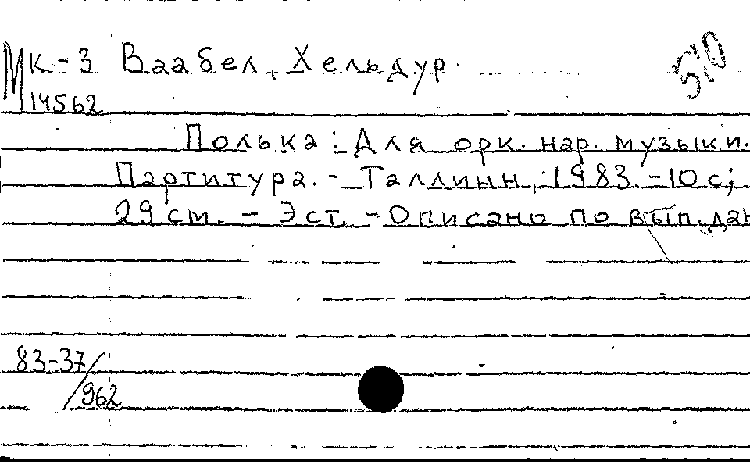 МК-3 Ваабел, Хельдур. 510
14562
Полька: Для орк. нар. музыки.
Партитура. - Таллинн, 1983. - 10 с;
29 см. - Эст. - Описано по вып. дан
83-37/
962